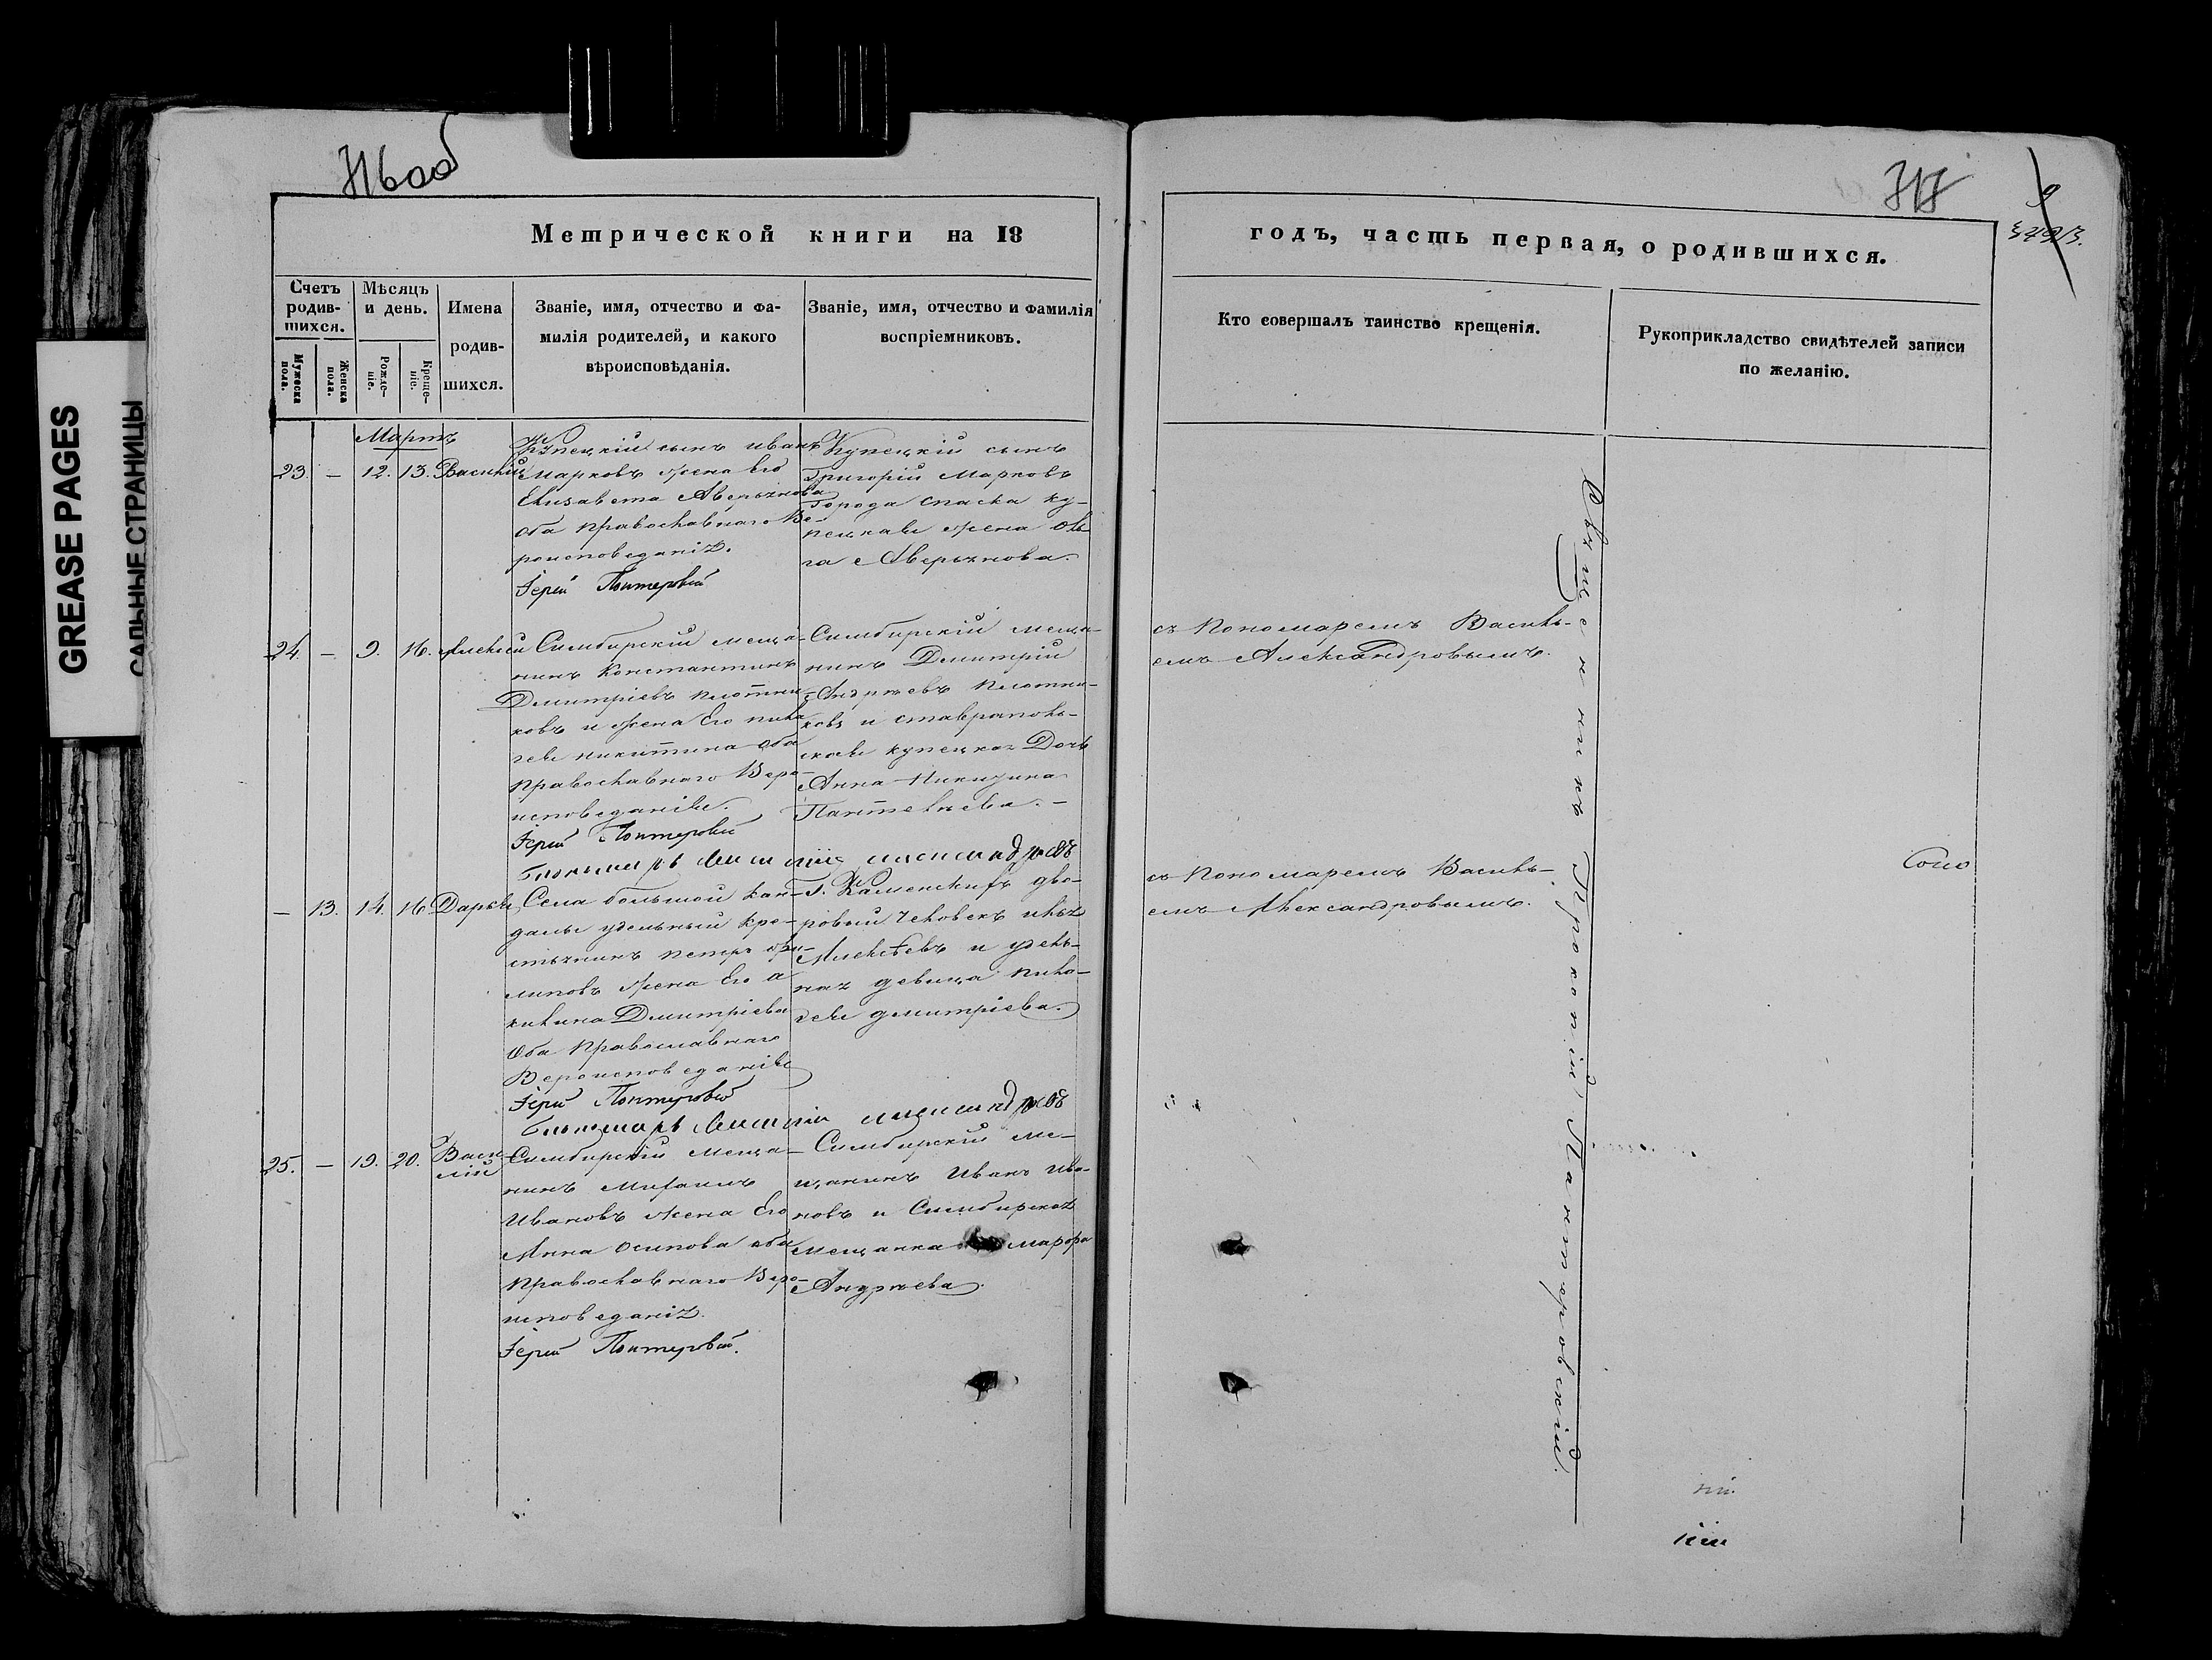 316об
317
9
GREASE PAGES
САЛЬНЫЕ СТРАНИЦЫ
Метрической книги на 18
годъ, часть первая, о родившихся.
Счетъ родив-шихся.
Мужеска пола.
Женска пола.
Мѣсяцъ и день.
Рожде-ніе.
Креще-ніе.
Имена
родив-
шихся.
Званіе, имя, отчество и фа-
милія родителей, и какого
вѣроисповѣданія.
Званіе, имя, отчество и фамилія
воспріемниковъ.
Кто совершалъ таинство крещенія.
Рукоприкладство свидѣтелей записи
по желанію.
Мартъ
23. – 12. 13. Василій
Купецкій сынъ иванъ
Марковъ жена его
Елизавета Аверьянова
оба православнаго Ве-
роисповеданія.
Іерей Пантеровскій
Купецкій сынъ
Григорій Марковъ
города спаска ку-
пецкая жена Оль
га Аверьянова.
24. – 9. 16. Алексей
Симбирскій меща-
нинъ Константинъ
Димитріевъ плотни-
ковъ и жена Его пела
гея никитина оба
православнаго Веро-
исповеданія.
Іерей Пантеровскій
Симбирскій меща-
нинъ Димитрій
Андреевъ плотни-
ковъ и ставрополь-
ская купецкая Дочь
Анна Никитина
Пантелеева. –
Пономарь Василій Александровъ
съ Пономаремъ Василь-
емъ Александровымъ.
– 13. 14. 16 Дарья
Села большой кан-
далы удельный кре-
стьянинъ петръ фи-
липовъ жена Его а
килина Димитріева
Оба православнаго
Вероисповеданія
Іерей Пантеровскій
Г. Каменскихъ дво-
ровый человекъ илья
Алексеевъ и удель-
ная девица пела-
гея димитріева.
Пономарь Василій Александровъ
съ Пономаремъ Василь-
емъ Александровымъ.
25. – 19. 20. Васи-
лій
Симбирскій меща-
нинъ Михаилъ
Ивановъ жена Его
Анна осипова оба
православнаго Веро-
исповеданія.
Іерей Пантеровскій.
Симбирскій ме-
щанинъ Иванъ Ива-
новъ и Симбирская
мещанка марфа
Андреева.
Священникъ Прокопій Пантеровскій.